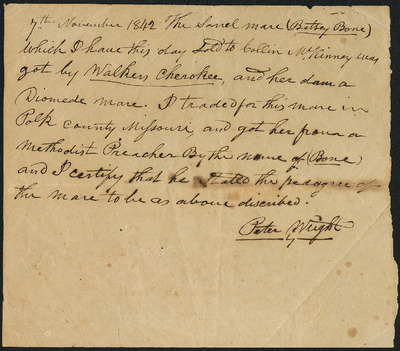 7th November 1842 The Sorrel mare (Betsy Bone)
which I have this day Sold to Collin McKinney was
got by Walkers Cherokee, and her dam a
Diomede mare. I traded for this mare in
Polk county Missouri, and got her from a
Methodist Preacher By the name of (Bone)
and I certify that he Stated the pedegree of
the mare to be as above described.
Peter Wright